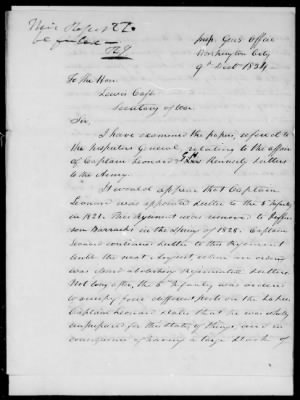 Insp. Genl's Office
Washington City
9th Decbr 1834
To the Hon.
Lewis Cass
Secretary of War
Sir,
I have examined the papers, referred to
the Inspector General, relating to the affair
of Captain Leonard Sutlers
to the Army.
It would appear that Captain
Leonard was appointed Sutler to the 5th Infantry
in 1821. This Regiment was removed to Jeffer-
son Barracks in the Spring of 1828. Captain
Leonard continued Sutler to this Regiment
until the next August, when an order
was issued abolishing Regimental Sutlers.
Not long after, the 5th Infantry was ordered
to occupy four different posts on the Lakes.
Captain Leonard states that he was wholly
unprepared for this state of things, and in
consequence of having a large Stock of